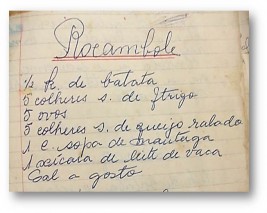 Rocambole
½ k. de batata
5 colheres s. de trigo
5 ovos
5 colheres s. de queijo ralado
1 c. sopa de mantega
1 xicara de leite de vaca
Sal a gosto